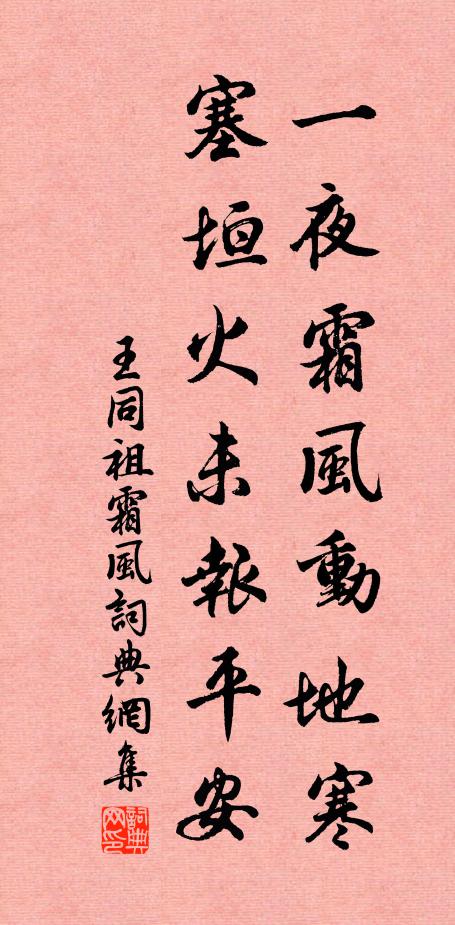 一夜霜風動地寒
塞垣火未報平安
王同祖霜風詞典網集
詞典網印